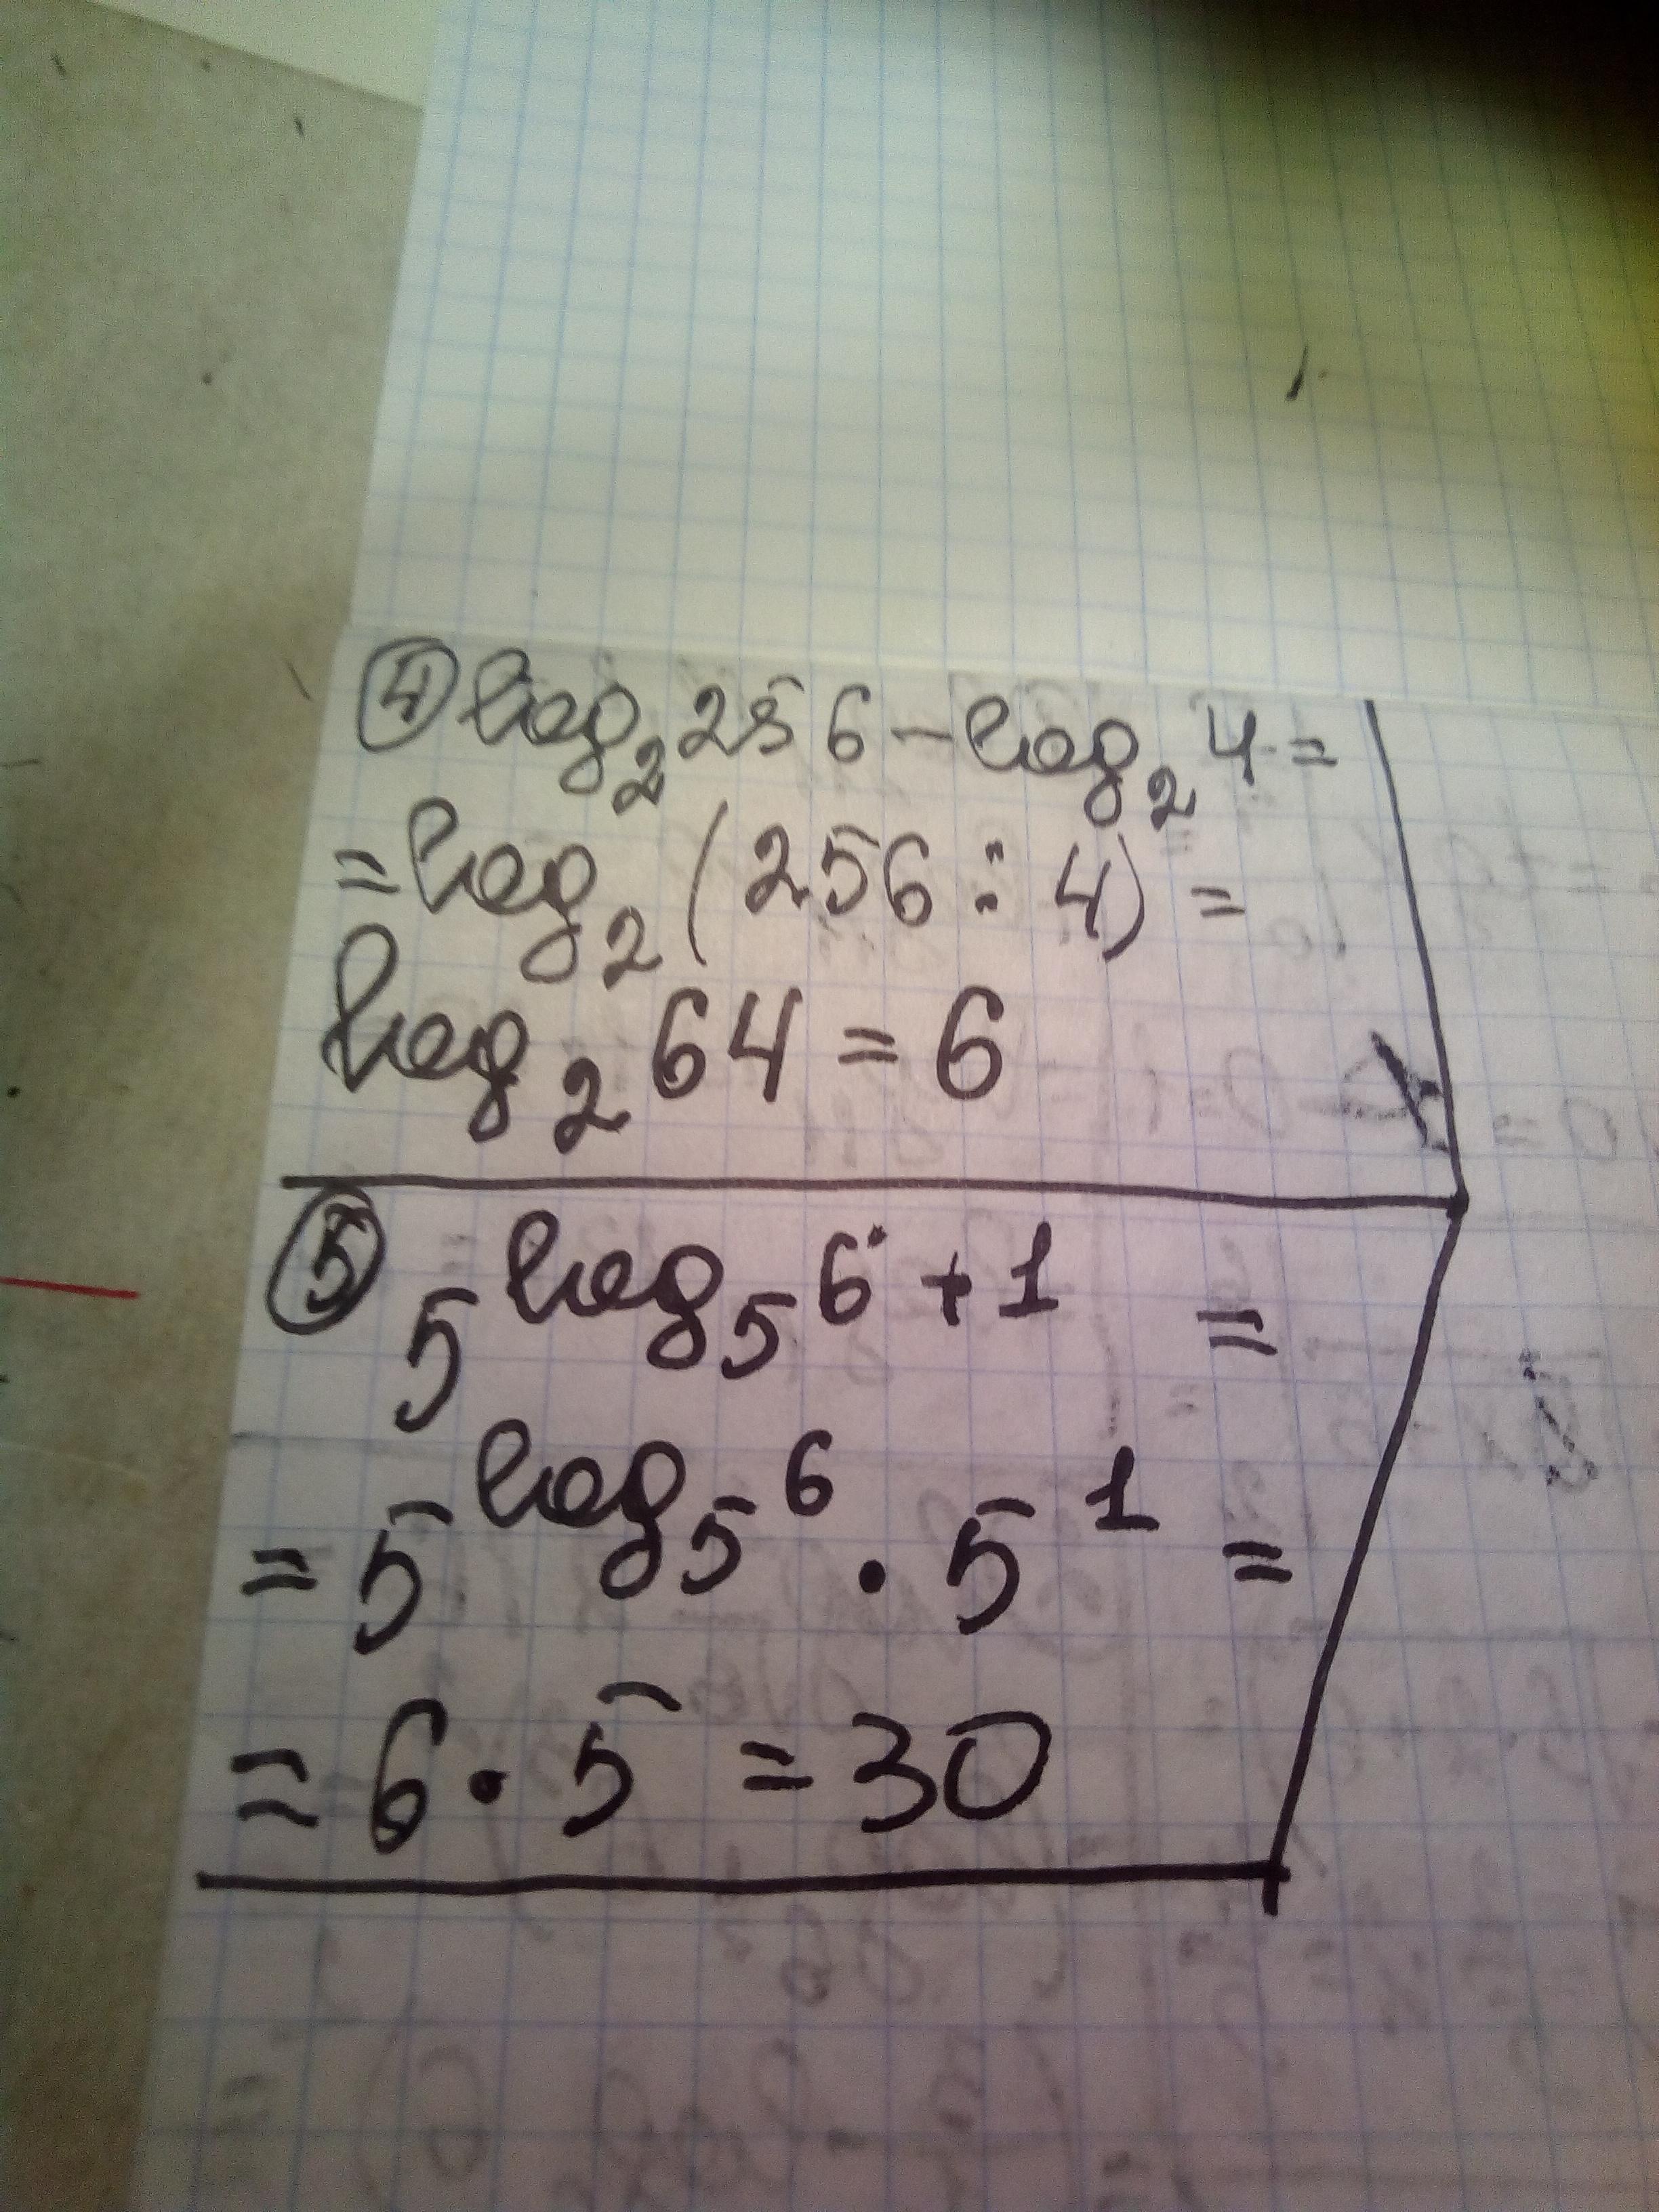 ④ log₂256 − log₂4 =
= log₂(256 : 4) =
log₂64 = 6
⑤ 5^(log₅6 + 1) =
= 5^(log₅6) · 5¹ =
= 6 · 5 = 30